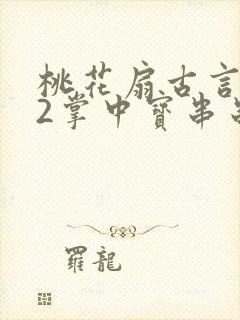 桃花扇古言
2掌中寶串
羅龍